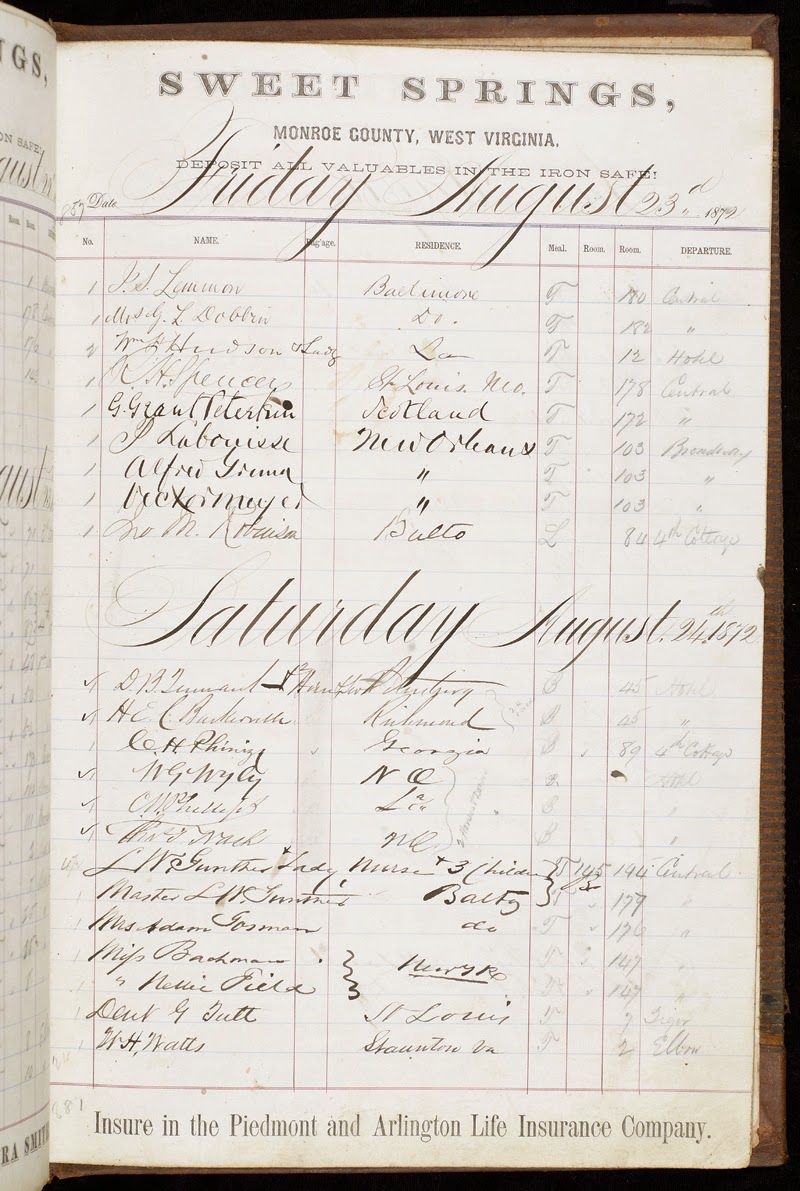 NGS,
SWEET SPRINGS,
MONROE COUNTY, WEST VIRGINIA.
DEPOSIT ALL VALUABLES IN THE IRON SAFE!
Date Friday August 23d 1872
No. NAME. Bag'age. RESIDENCE. Meal. Room. Room. DEPARTURE.
1 Lammon Baltimore T 180 Central
1 Mrs G. L Dobbin Do. T 182 "
2 Wm Hudson & Lady La T 12 Hotel
1 Spencer St Louis. Mo. T 178 Central
1 G. Grant Peterkin Scotland T 172 "
1 P Labouisse New Orleans T 103 Broadway
1 Alfred " T 103 "
1 Victor Meyer " T 103 "
1 Jno M. Robinson Balto L 84 4th Cottage
Saturday August. 24th 1872
D. B. Tennant Petersburg B 45 Hotel
H. E. C. Baskerville Richmond B 45 "
1 C. H. Phinizy Georgia B 89 4th Cottage
W G Wyly N O Hotel
C. W. Phillips La B "
Nash N O B "
L W. Gunther & Lady Nurse & 3 Children T 145 194 Central
1 Master L. W. Gunther Balto 177 "
1 Mrs Adam do T 176 "
1 Miss Bachman New York T 147 "
1 " Nellie Field 147 "
1 Dent G Tutt St Louis T 7 Tiger
1 W. H. Watts Staunton Va T 2 Elbow
Insure in the Piedmont and Arlington Life Insurance Company.
RA SMIT